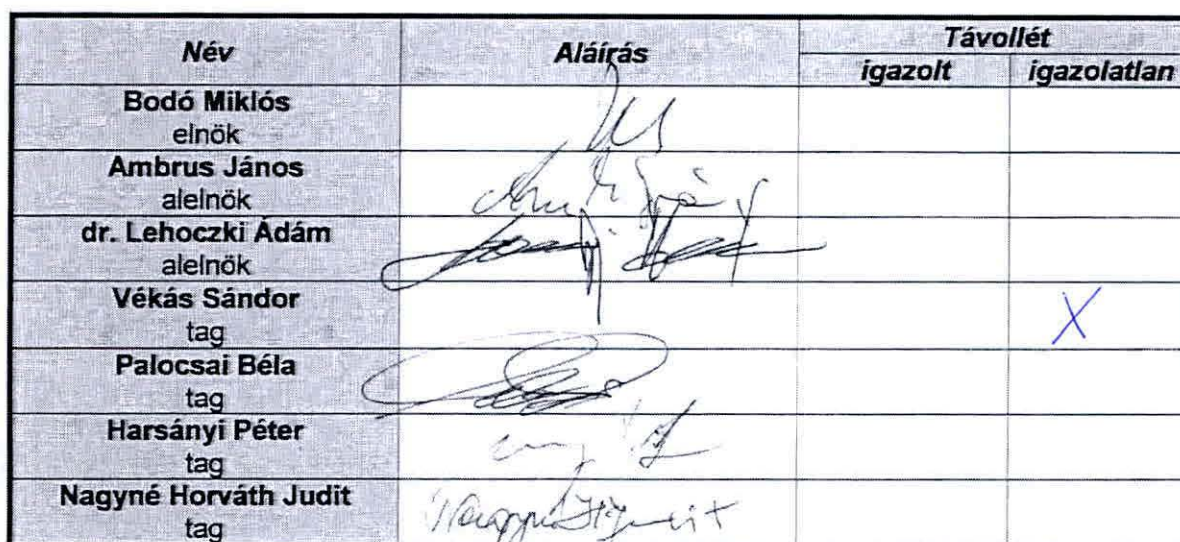 Név Aláírás Távollét
igazolt igazolatlan
Bodó Miklós
elnök
Ambrus János
alelnök
dr. Lehoczki Ádám
alelnök
Végás Sándor
tag X
Palocsai Béla
tag
Harsányi Péter
tag
Nagyné Horváth Judit
tag